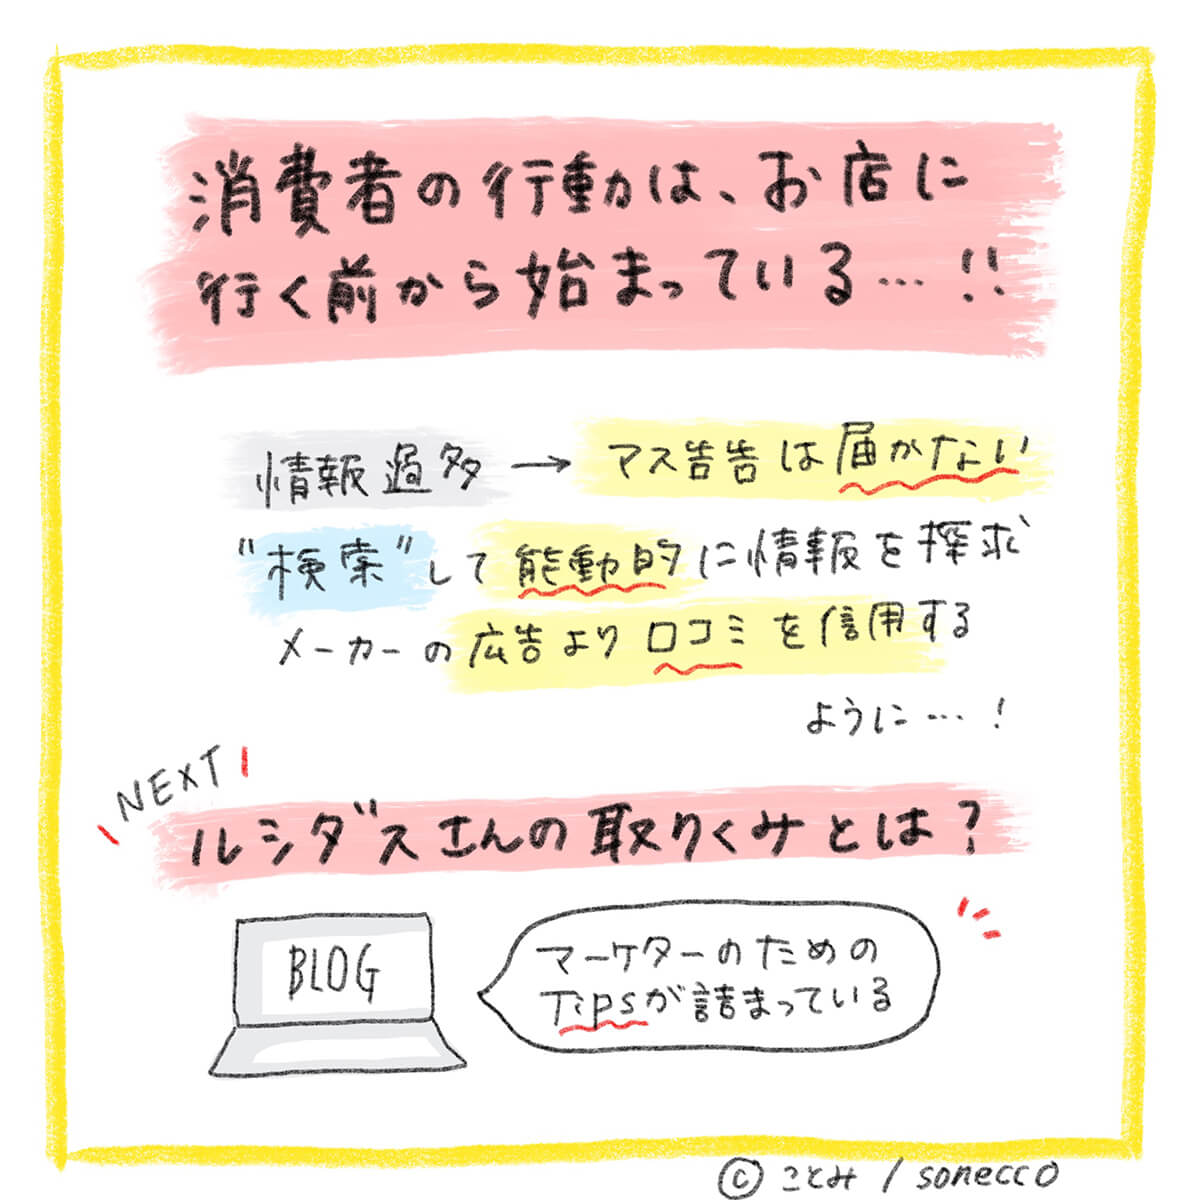 消費者の行動は、お店に
行く前から始まっている…!!
情報過多 → マス告告は届かない
"検索"して能動的に情報を探求
メーカーの広告より口コミを信用する
ように…!
NEXT
ルシダスさんの取りくみとは?
BLOG
マーケターのための
Tipsが詰まっている
©ことみ / sonecco